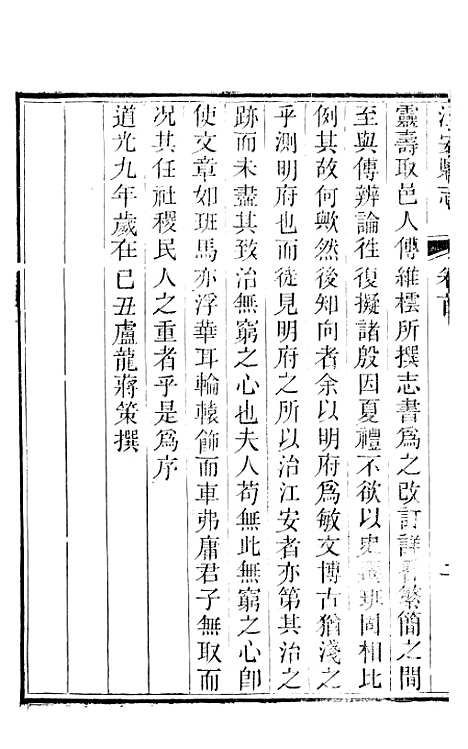 江安縣志 卷首 二
靈壽取邑人傅維橒所撰志書爲之改訂詳畧繁簡之間
至與傅辨論徃復擬諸殷因夏禮不欲以史遷班固相比
例其故何歟然後知向者余以明府爲敏文博古猶淺之
乎測明府也而徒見明府之所以治江安者亦第其治之
跡而未盡其致治無窮之心也夫人苟無此無窮之心卽
使文章如班馬亦浮華耳輪轅飾而車弗庸君子無取而
况其任社稷民人之重者乎是爲序
道光九年歲在己丑盧龍蔣策撰